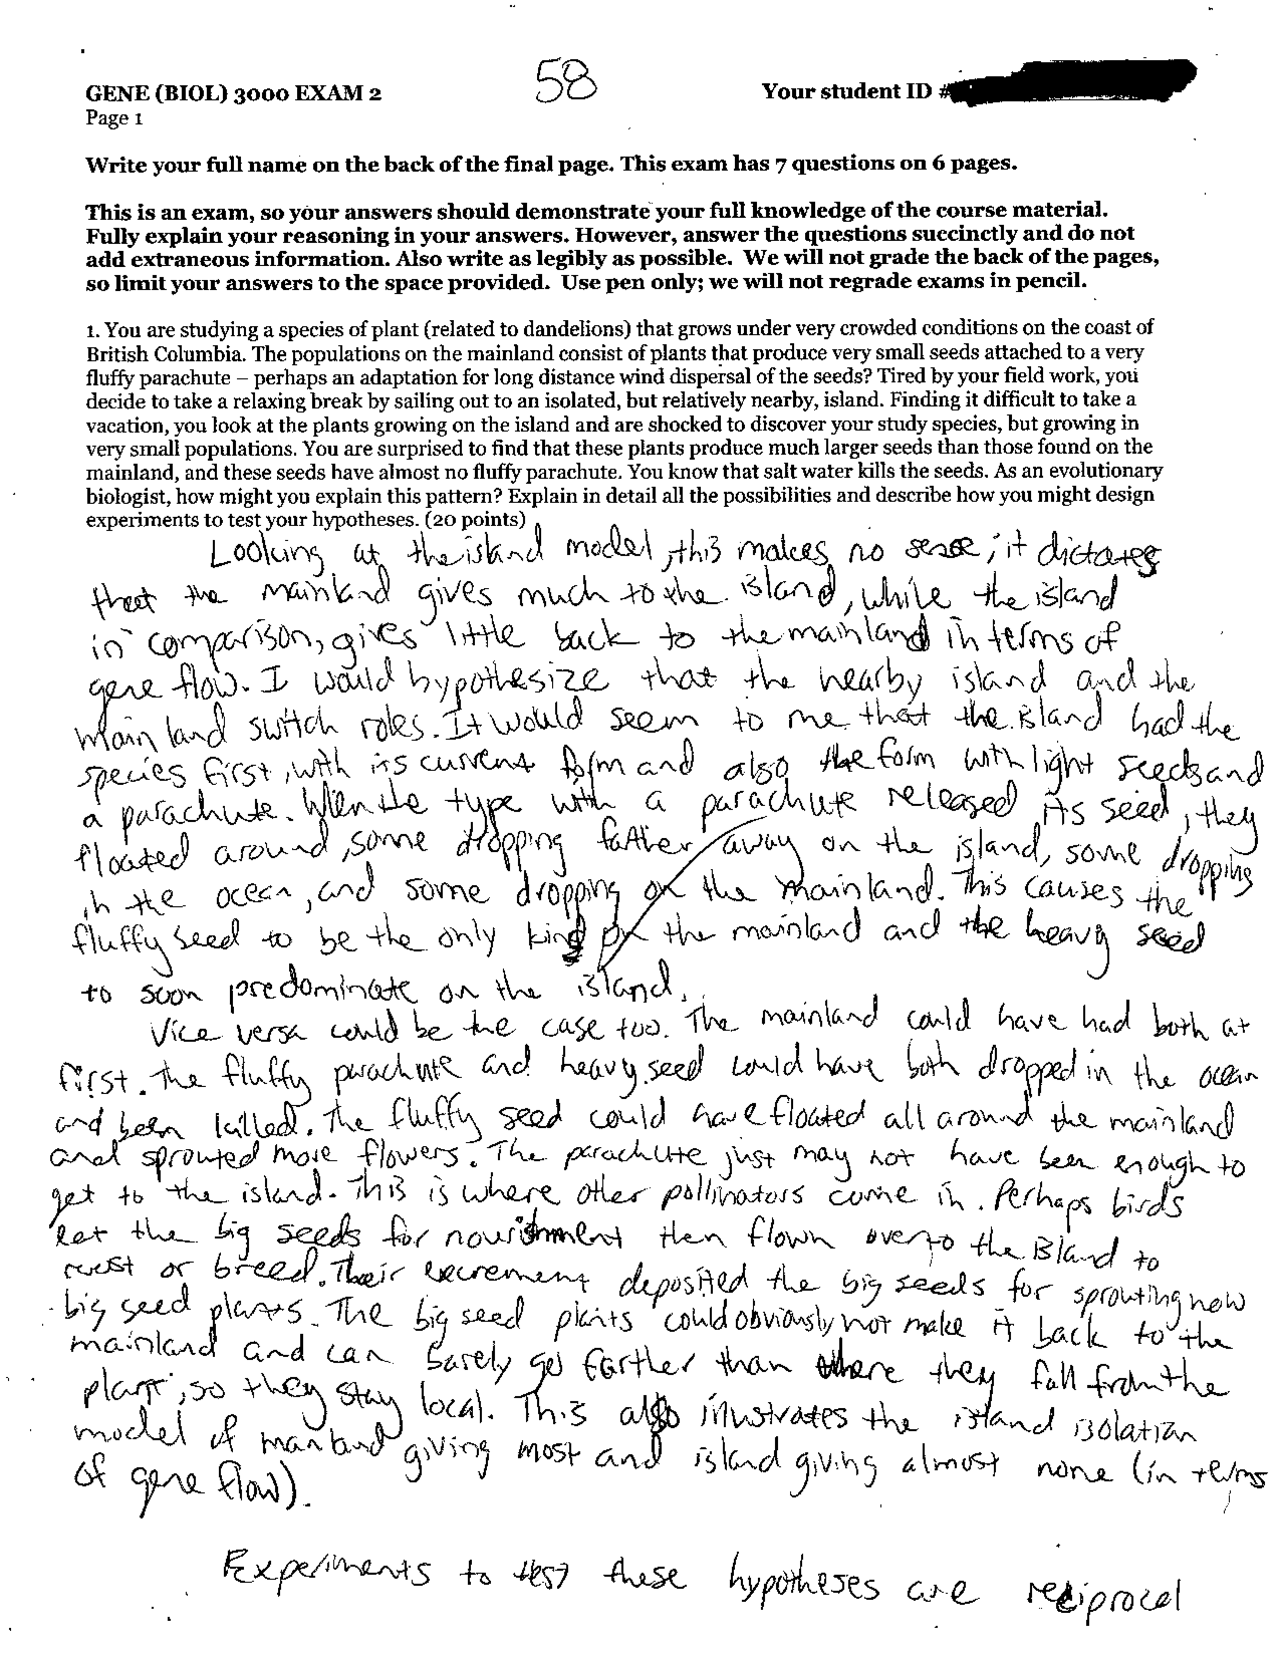 58
GENE (BIOL) 3000 EXAM 2
Your student ID #
Page 1
Write your full name on the back of the final page. This exam has 7 questions on 6 pages.
This is an exam, so your answers should demonstrate your full knowledge of the course material.
Fully explain your reasoning in your answers. However, answer the questions succinctly and do not
add extraneous information. Also write as legibly as possible. We will not grade the back of the pages,
so limit your answers to the space provided. Use pen only; we will not regrade exams in pencil.
1. You are studying a species of plant (related to dandelions) that grows under very crowded conditions on the coast of
British Columbia. The populations on the mainland consist of plants that produce very small seeds attached to a very
fluffy parachute – perhaps an adaptation for long distance wind dispersal of the seeds? Tired by your field work, you
decide to take a relaxing break by sailing out to an isolated, but relatively nearby, island. Finding it difficult to take a
vacation, you look at the plants growing on the island and are shocked to discover your study species, but growing in
very small populations. You are surprised to find that these plants produce much larger seeds than those found on the
mainland, and these seeds have almost no fluffy parachute. You know that salt water kills the seeds. As an evolutionary
biologist, how might you explain this pattern? Explain in detail all the possibilities and describe how you might design
experiments to test your hypotheses. (20 points)
Looking at the island model, this makes no sense; it dictates
that the mainland gives much to the island, while the island
in comparison, gives little back to the mainland in terms of
gene flow. I would hypothesize that the nearby island and the
mainland switch roles. It would seem to me that the island had the
species first, with its current form and also the form with light seeds and
a parachute. When the type with a parachute released its seed, they
floated around, some dropping farther away on the island, some dropping
in the ocean, and some dropping on the mainland. This causes the
fluffy seed to be the only kind on the mainland and the heavy seed
to soon predominate on the island.
Vice versa could be the case too. The mainland could have had both at
first. The fluffy parachute and heavy seed could have both dropped in the ocean
and been killed. The fluffy seed could have floated all around the mainland
and sprouted more flowers. The parachute just may not have been enough to
get to the island. This is where other pollinators come in. Perhaps birds
eat the big seeds for nourishment then flown over to the island to
rest or breed. Their excrement deposited the big seeds for sprouting new
big seed plants. The big seed plants could obviously not make it back to the
mainland and can barely go farther than where they fall from the
plant, so they stay local. This also illustrates the island isolation
model of mainland giving most and island giving almost none (in terms
of gene flow).
Experiments to test these hypotheses are reciprocal